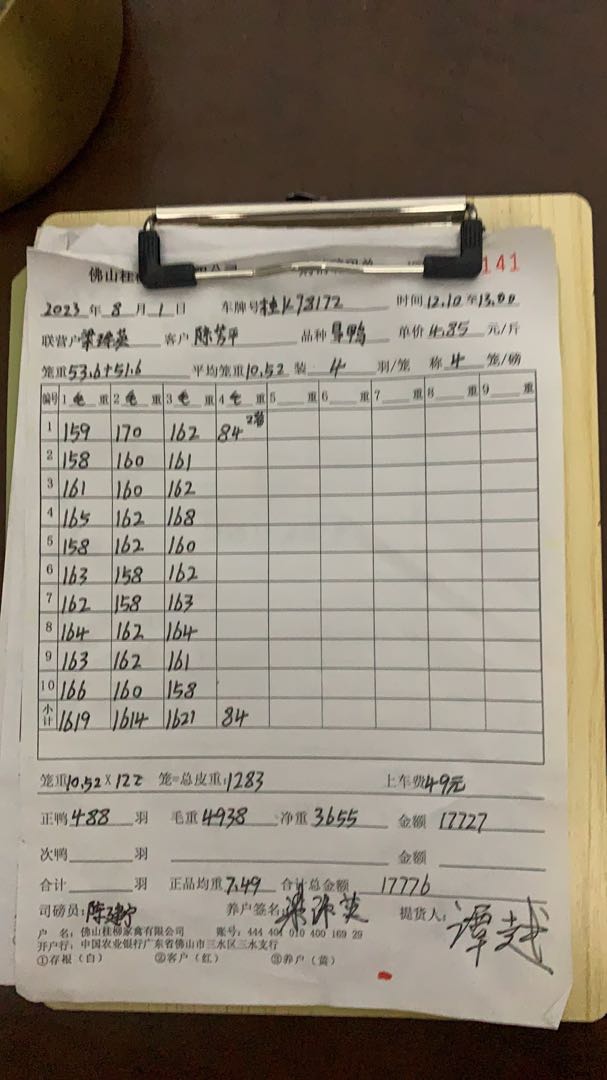 佛山桂 141
2023 年 8 月 1 日 车牌号桂K78172 时间12.10至13.00
联营户 梁 英 客户 陈 平 品种 鸭 单价4.85 元/斤
笼重53.6+51.6 平均笼重10.52 装 4 羽/笼 称 4 笼/磅
编号 1 毛 重 2 毛 重 3 毛 重 4 毛 重 5 重 6 重 7 重 8 重 9 重
1 159 170 162 84 2笼
2 158 160 161
3 161 160 162
4 165 162 168
5 158 162 160
6 163 158 162
7 162 158 163
8 164 162 164
9 163 162 161
10 166 160 158
小计 1619 1614 1621 84
笼重10.52×122 笼=总皮重:1283 上车费49元
正鸭488 羽 毛重4938 净重3655 金额 17727
次鸭 羽 金额
合计 羽 正品均重7.49 合计总金额 17776
司磅员:陈建宁 养户签名: 英 提货人:谭越
户 名:佛山桂柳家禽有限公司 账号:444 404 010 400 169 29
开户行:中国农业银行广东省佛山市三水区三水支行
①存根(白) ②客户(红) ③养户(黄)